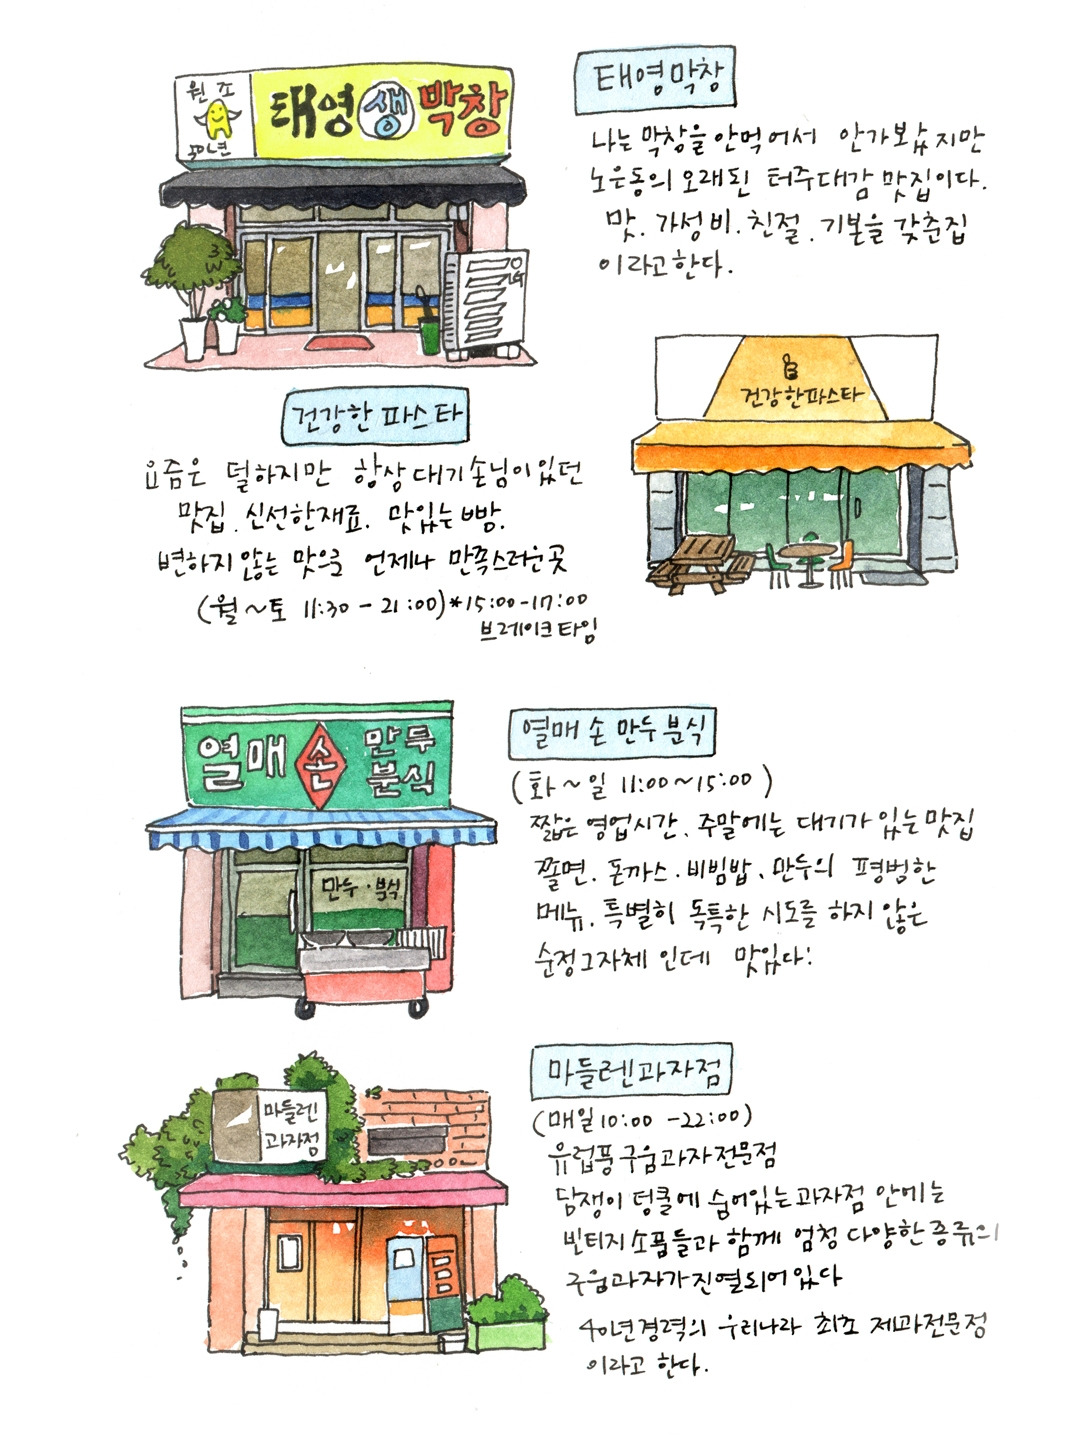 원조
30년
태영생막창
태영막창
나는 막창을 안먹어서 안가봤지만
노은동의 오래된 터주대감 맛집이다.
맛. 가성비. 친절. 기본을 갖춘집
이라고한다.
건강한파스타
건강한 파스타
요즘은 덜하지만 항상 대기손님이 있던
맛집. 신선한재료. 맛있는빵.
변하지 않는 맛으로 언제나 만족스러운곳
(월~토 11:30 - 21:00)*15:00-17:00
브레이크타임
열매손만두
분식
만두·분식
열매 손 만두 분식
(화~일 11:00~15:00)
짧은 영업시간. 주말에는 대기가 있는 맛집
쫄면. 돈까스. 비빔밥. 만두의 평범한
메뉴. 특별히 독특한 시도를 하지 않은
순정그자체 인데 맛있다!
마들렌
과자점
마들렌과자점
(매일10:00 -22:00)
유럽풍 구움과자전문점
담쟁이 덩쿨에 숨어있는과자점 안에는
빈티지소품들과 함께 엄청 다양한종류의
구움과자가진열되어있다
40년경력의 우리나라 최초 제과전문점
이라고 한다.